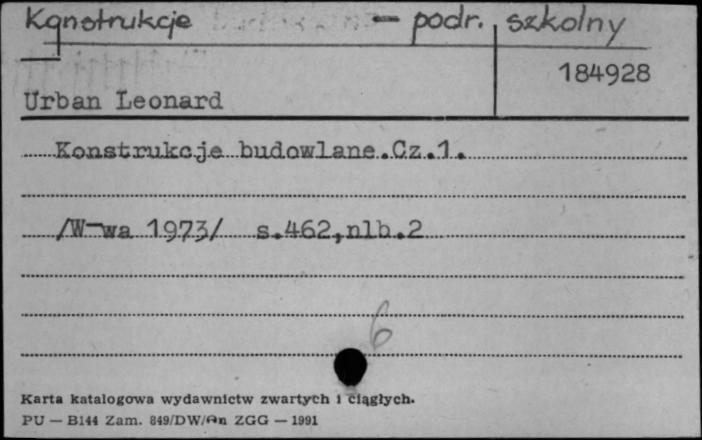 Konstrukcje — podr. szkolny
184928
Urban Leonard
Konstrukcje budowlane.Cz.1.
/W-wa 1973/ s.462,nlb.2
6
Karta katalogowa wydawnictw zwartych i ciągłych.
PU — B144 Zam. 849/DW/An ZGG — 1991